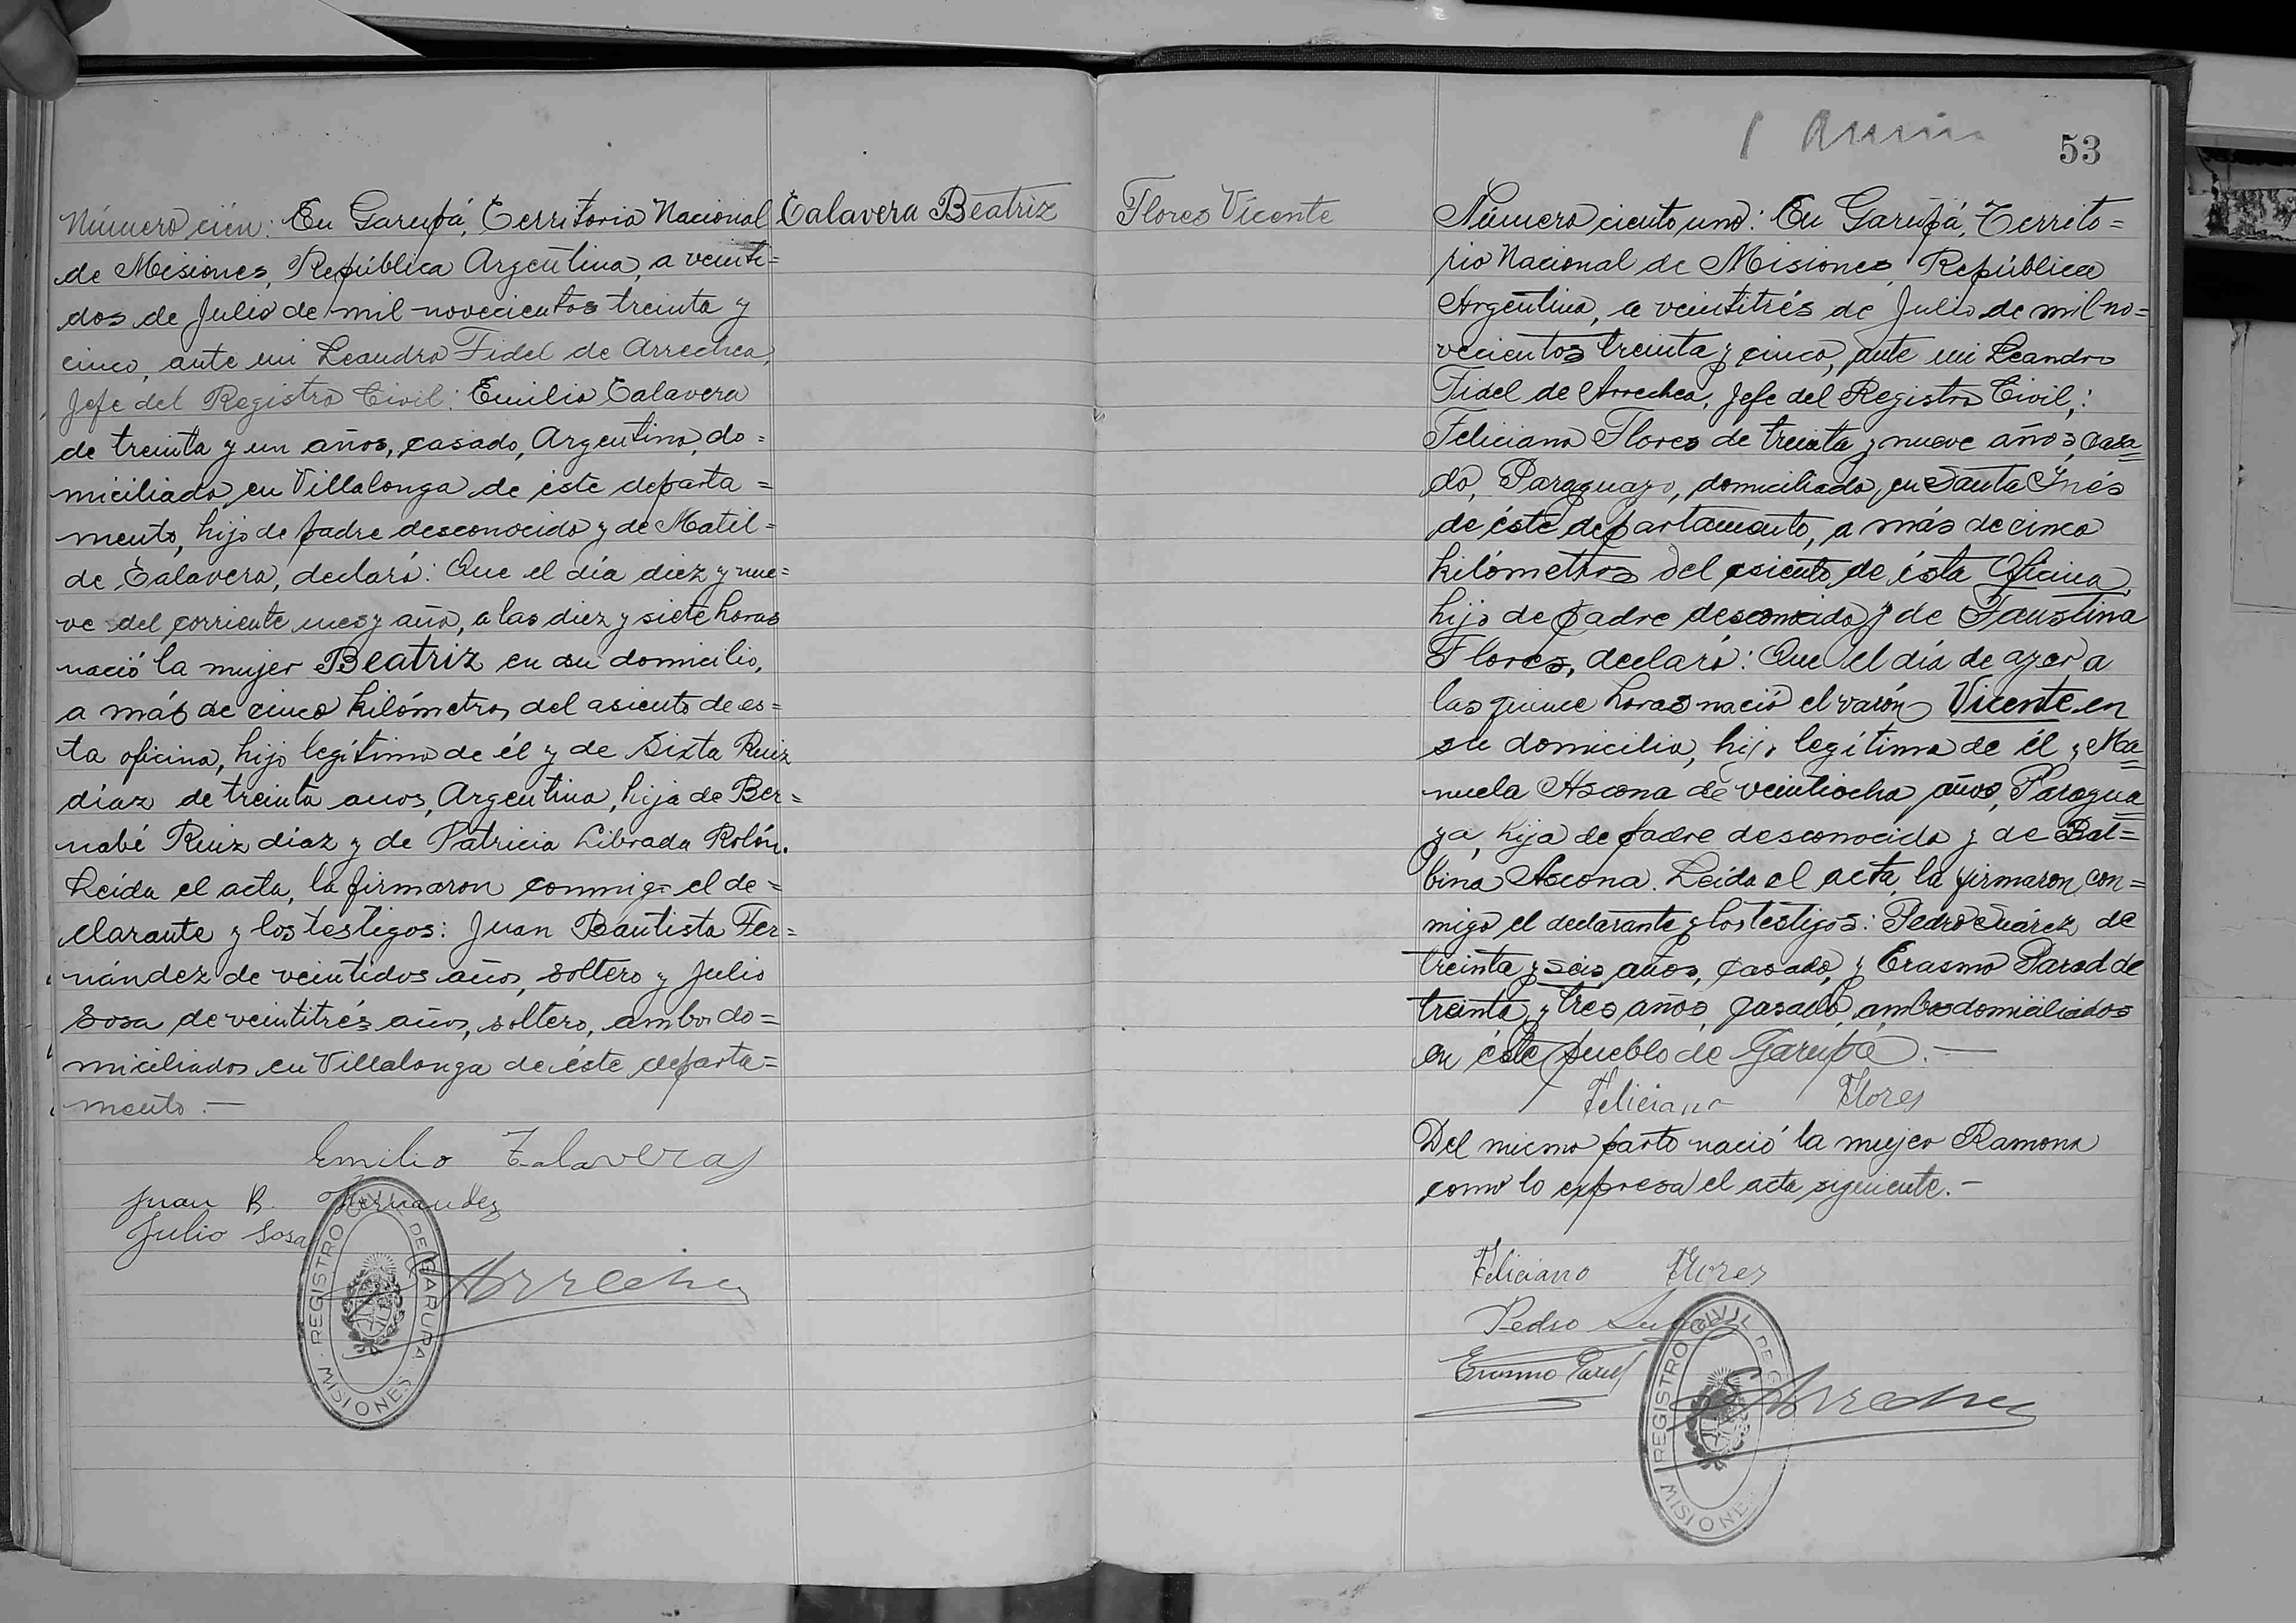 Número cién: En Garupá, Territorio Nacional
de Misiones, República Argentina, a veinti=
dos de Julio de mil novecientos treinta y
cinco, ante mi Leandro Fidel de Arrechea,
Jefe del Registro Civil: Emilio Talavera
de treinta y un años, casado, Argentino, do=
miciliado en Villalonga de éste departa=
mento, hijo de padre desconocido y de Matil=
de Talavera, declaró: Que el día diez y nue=
ve del corriente mes y año, a las diez y siete horas
nació la mujer Beatriz en su domicilio,
a más de cinco kilómetros del asiento de es=
ta oficina, hijo legítimo de él y de Sixta Ruiz
díaz de treinta anos, Argentina, hija de Ber=
nabé Ruiz díaz y de Patricia Librada Rolón.
Leída el acta, la firmaron conmigo el de=
clarante y los testigos: Juan Bautista Fer=
nández de veintidos años, soltero y Julio
Sosa de veintitrés años, soltero, ambos do=
miciliados en Villalonga de éste departa=
mento.—
Emilio Talavera
Juan B. Fernandez
Julio Sosa
Arrechea
REGISTRO CIVIL DE GARUPA
MISIONES
Talavera Beatriz
Flores Vicente
53
Número ciento uno: En Garupá, Territo=
rio Nacional de Misiones, República
Argentina, a veintitrés de Julio de mil no=
vecientos treinta y cinco, ante mi Leandro
Fidel de Arrechea, Jefe del Registro Civil,:
Feliciano Flores de treinta y nueve años, casa=
do, Paraguayo, domiciliado en Santa Inés
de éste departamento, a más de cinco
kilómetros del asiento de ésta Oficina,
hijo de padre desconocido y de Faustina
Flores, declaró: Que el día de ayer a
las quince horas nació el varón Vicente en
su domicilio, hijo legítimo de él y Ma=
nuela Ascona de veintiocho años, Paragua=
ya, hija de padre desconocido y de Bal=
bina Ascona. Leída el acta, la firmaron con=
migo el declarante y los testigos: Pedro Suárez de
treinta y seis años, casado, y Erasmo Parod de
treinta y tres años, casado, ambos domiciliados
en éste pueblo de Garupá.—
Feliciano Flores
Del mismo parto nació la mujer Ramona
como lo expresa el acta siguiente.—
Feliciano Flores
Pedro
Erasmo Parod
Arrechea
REGISTRO CIVIL DE G
MISIONE